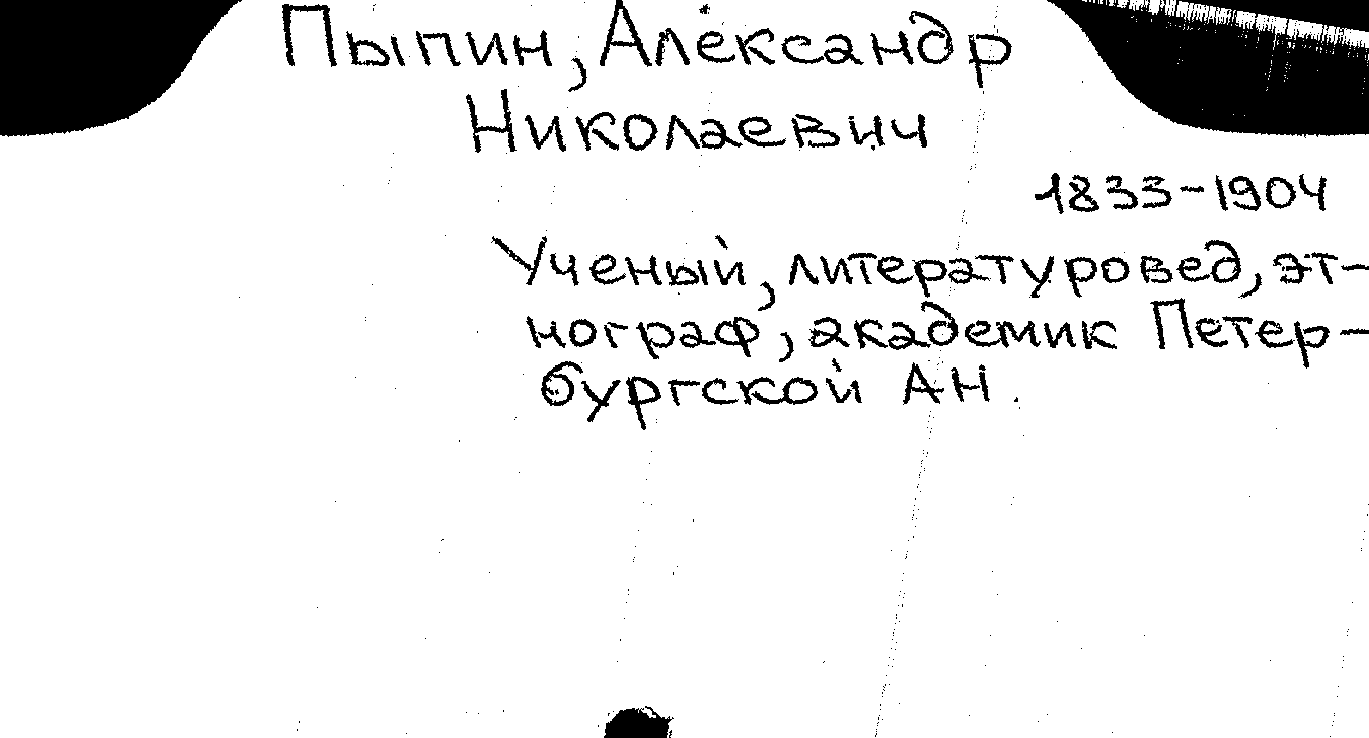 Пыпин, Александр
Николаевич
1833-1904
Ученый, литературовед, эт-
нограф, академик Петер-
бургской АН.